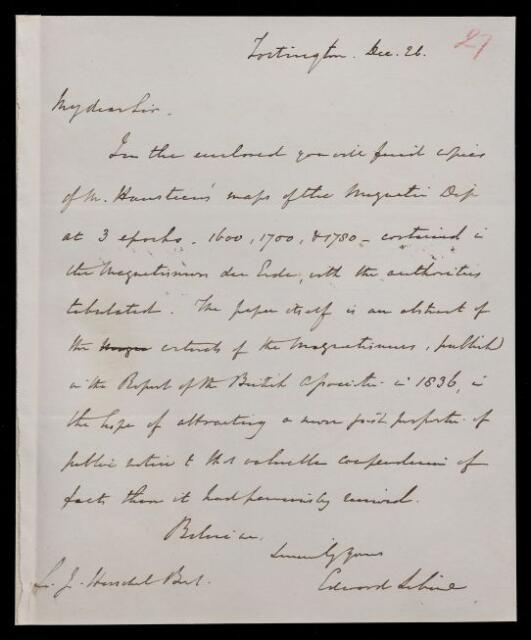 Tortington. Dec. 26.
27
My dear Sir.
In the enclosed you will find copies
of M. Hansteen's maps of the Magnetic Dip
at 3 epochs. 1600, 1700, & 1780 - contained in
the Magnetismus der Erde, with the authorities
tabulated. The paper itself is an abstract of
the contents of the Magnetismus, published
in the Report of the British Association in 1836, in
the hope of attracting a more just proportion of
public notice to that valuable compendium of
facts than it had previously received.
Believe me,
Sincerely yours
Edward Sabine
Sir J. Herschel Bart.